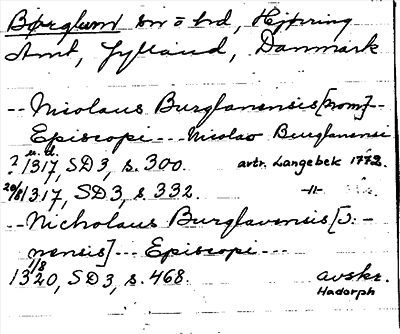 Børglum sn o hd, Hjørring
Amt, Jylland, Danmark
-- Nicolaus Burglanensis [nom] --
Episcopi --- Nicolao Burglanensi
? u.d. 1317, SD 3, s. 300. avtr. Langebek 1772.
20/8 1317, SD 3, s. 332. -"-
-- Nicholaus Burglavensis [ɔ: -
nensis] --- Episcopi ---
1/8 1320, SD 3, s. 468. avskr.
Hadorph